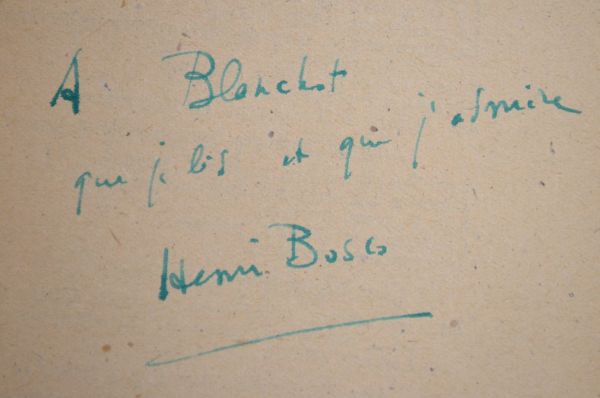 A Blanchot
que je lis et que j'admire
Henri Bosco